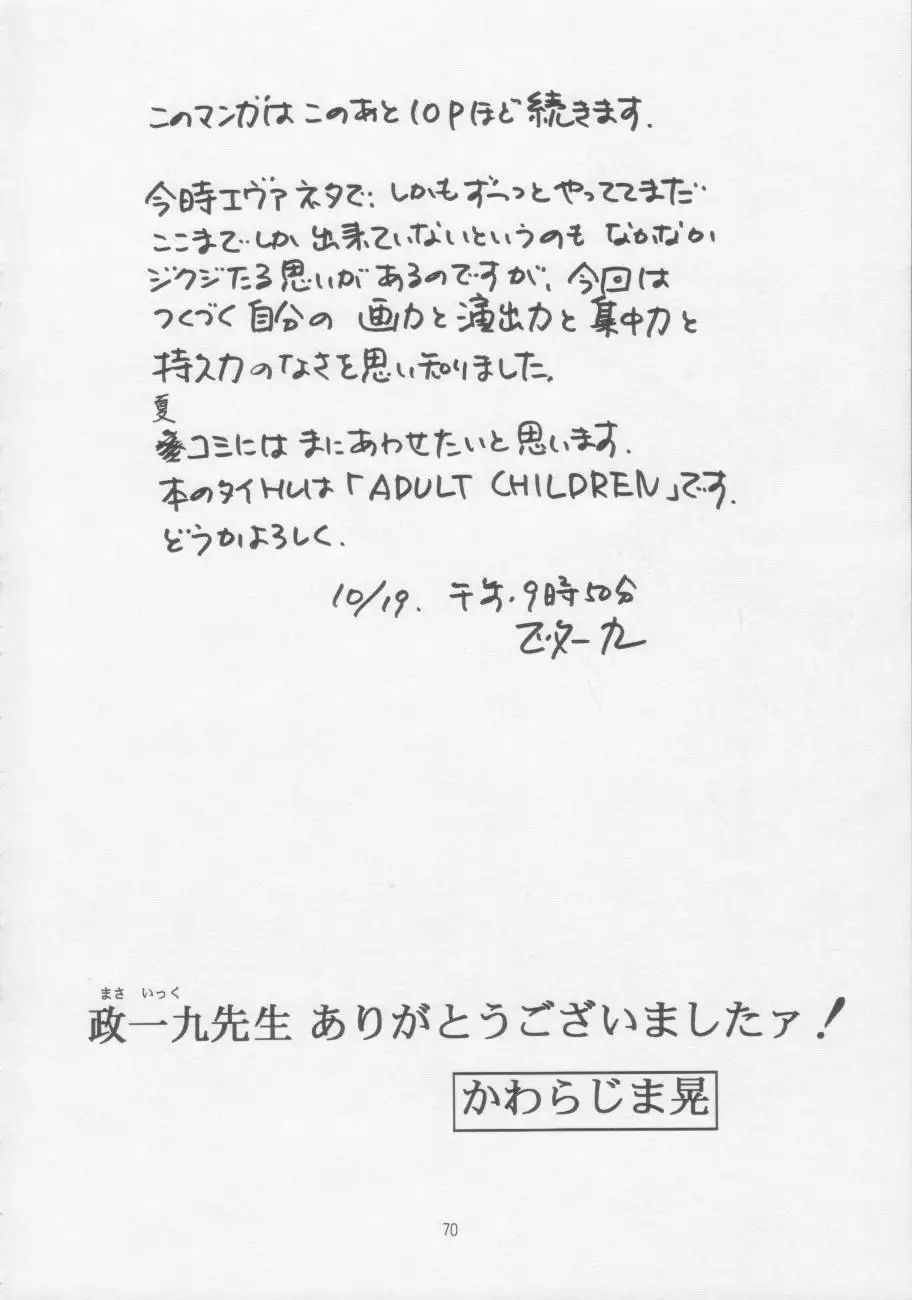 このマンガはこのあと10Pほど続きます.
今時エヴァネタで、しかもずーっとやっててまだ
ここまでしか出来ていないというのも なかなか
ジクジたる思いがあるのですが、今回は
つくづく自分の 画力と演出力と集中力と
持久力のなさを思い知りました。
夏
コミには まにあわせたいと思います.
本のタイトルは「ADULT CHILDREN」です.
どうかよろしく.
10/19. 午前.9時50分
政一九
まさ いっく
政一九先生 ありがとうございましたァ!
かわらじま晃
70